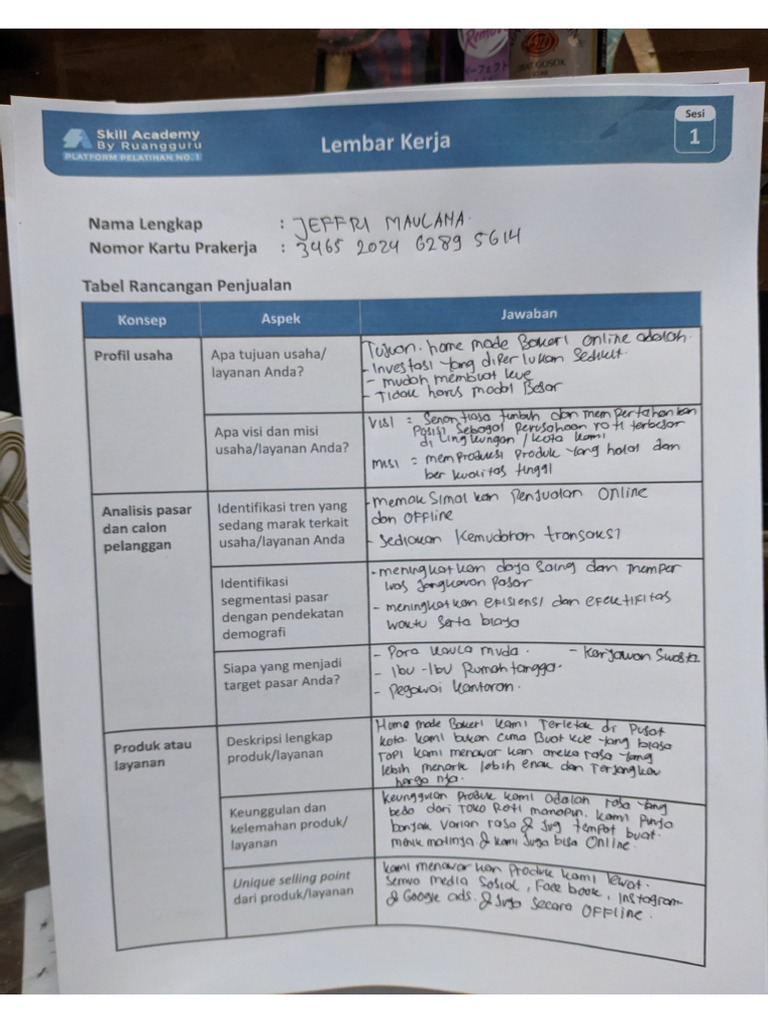 Skill Academy
By Ruangguru
PLATFORM PELATIHAN NO. 1
Lembar Kerja
Sesi
1
Nama Lengkap : JEFFRI MAULANA.
Nomor Kartu Prakerja : 3465 2024 6289 5614
Tabel Rancangan Penjualan
Konsep Aspek Jawaban
Profil usaha
Apa tujuan usaha/
layanan Anda?
Tujuan. home made Bakeri online adalah.
- Investasi yang diperlukan sedikit.
- mudah membuat kue
- Tidak harus modal Besar
Apa visi dan misi
usaha/layanan Anda?
Visi = Senantiasa tumbuh dan mempertahankan
Posisi sebagai perusahaan roti terbesar
di Lingkungan / kota kami
misi = memproduksi produk yang halal dan
berkualitas tinggi
Analisis pasar
dan calon
pelanggan
Identifikasi tren yang
sedang marak terkait
usaha/layanan Anda
- memaksimalkan Penjualan Online
dan OFFline
- Sediakan Kemudahan transaksi
Identifikasi
segmentasi pasar
dengan pendekatan
demografi
- meningkatkan daya saing dan memper
luas jangkauan pasar
- meningkatkan efisiensi dan efektifitas
waktu serta biaya
Siapa yang menjadi
target pasar Anda?
- Para kaula muda. - Karyawan Swasta
- Ibu - Ibu Rumah tangga.
- Pegawai kantoran.
Produk atau
layanan
Deskripsi lengkap
produk/layanan
Home made Bakeri kami Terletak di Pusat
kota kami bukan cuma Buat kue yang biasa
Tapi kami menawarkan aneka rasa yang
lebih menarik lebih enak dan Terjangkau
harga nya.
Keunggulan dan
kelemahan produk/
layanan
Keunggulan Produk kami adalah rasa yang
beda dari Toko Roti manapun. kami Punya
banyak varian rasa & jug tempat buat.
& kami Juga bisa Online.
Unique selling point
dari produk/layanan
kami menawarkan Produk kami lewat.
semua media sosial, Face book, Instagram
& Google ads. & Juga secara OFFline.